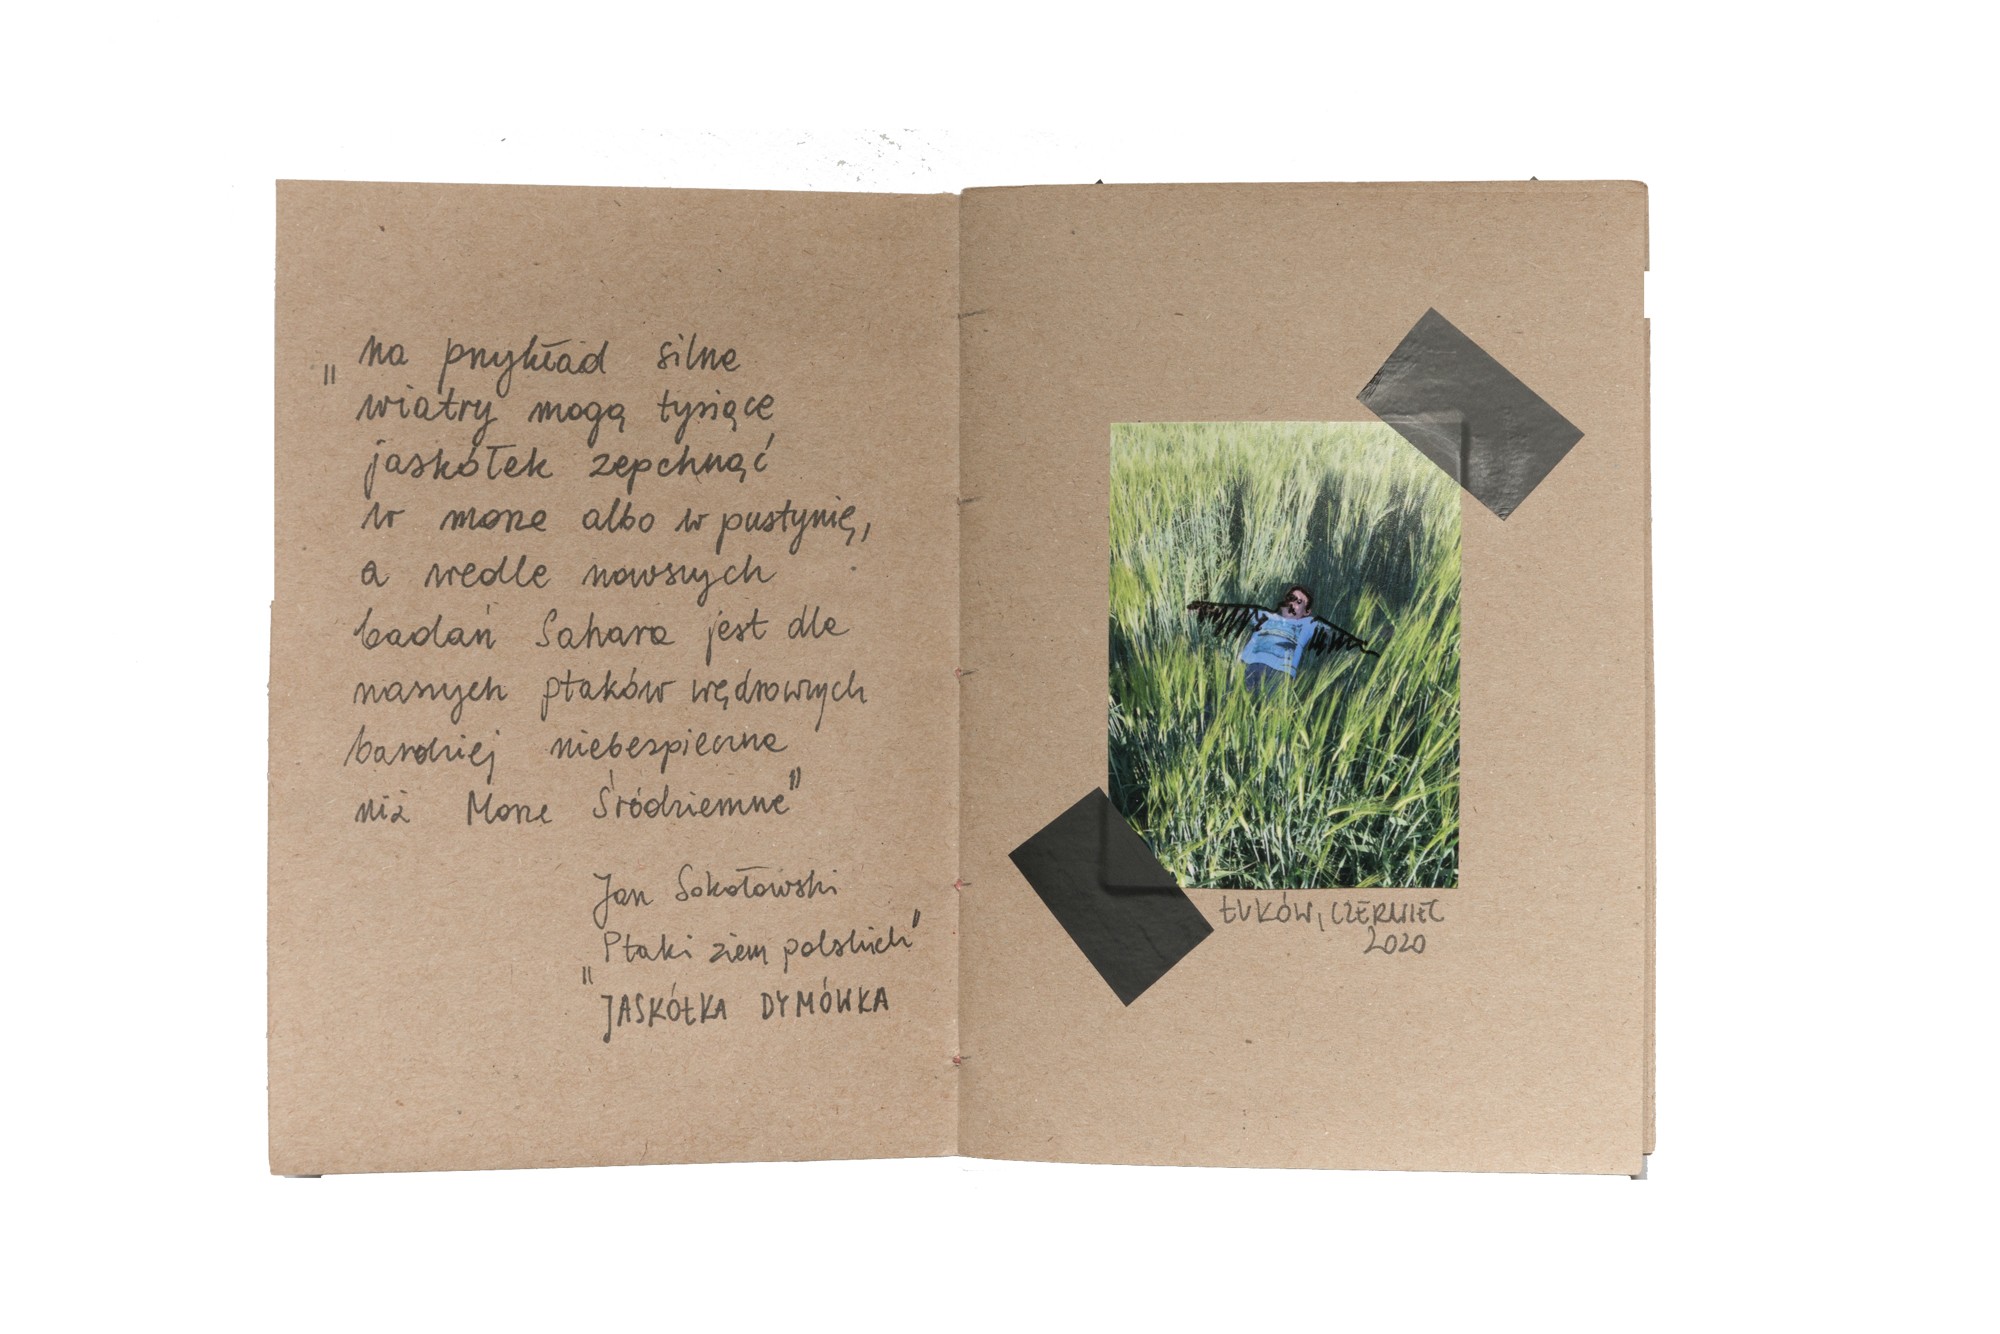 „na przykład silne
wiatry mogą tysiące
jaskółek zepchnąć
w morze albo w pustynię,
a wedle nowszych
badań Sahara jest dla
naszych ptaków wędrownych
bardziej niebezpieczna
niż Morze Śródziemne”
Jan Sokołowski
„Ptaki ziem polskich”
JASKÓŁKA DYMÓWKA
ŁUKÓW, CZERWIEC
2020